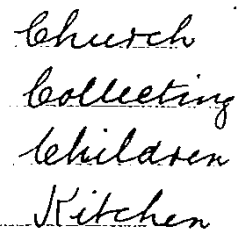 Church
Collecting
Children
Kitchen